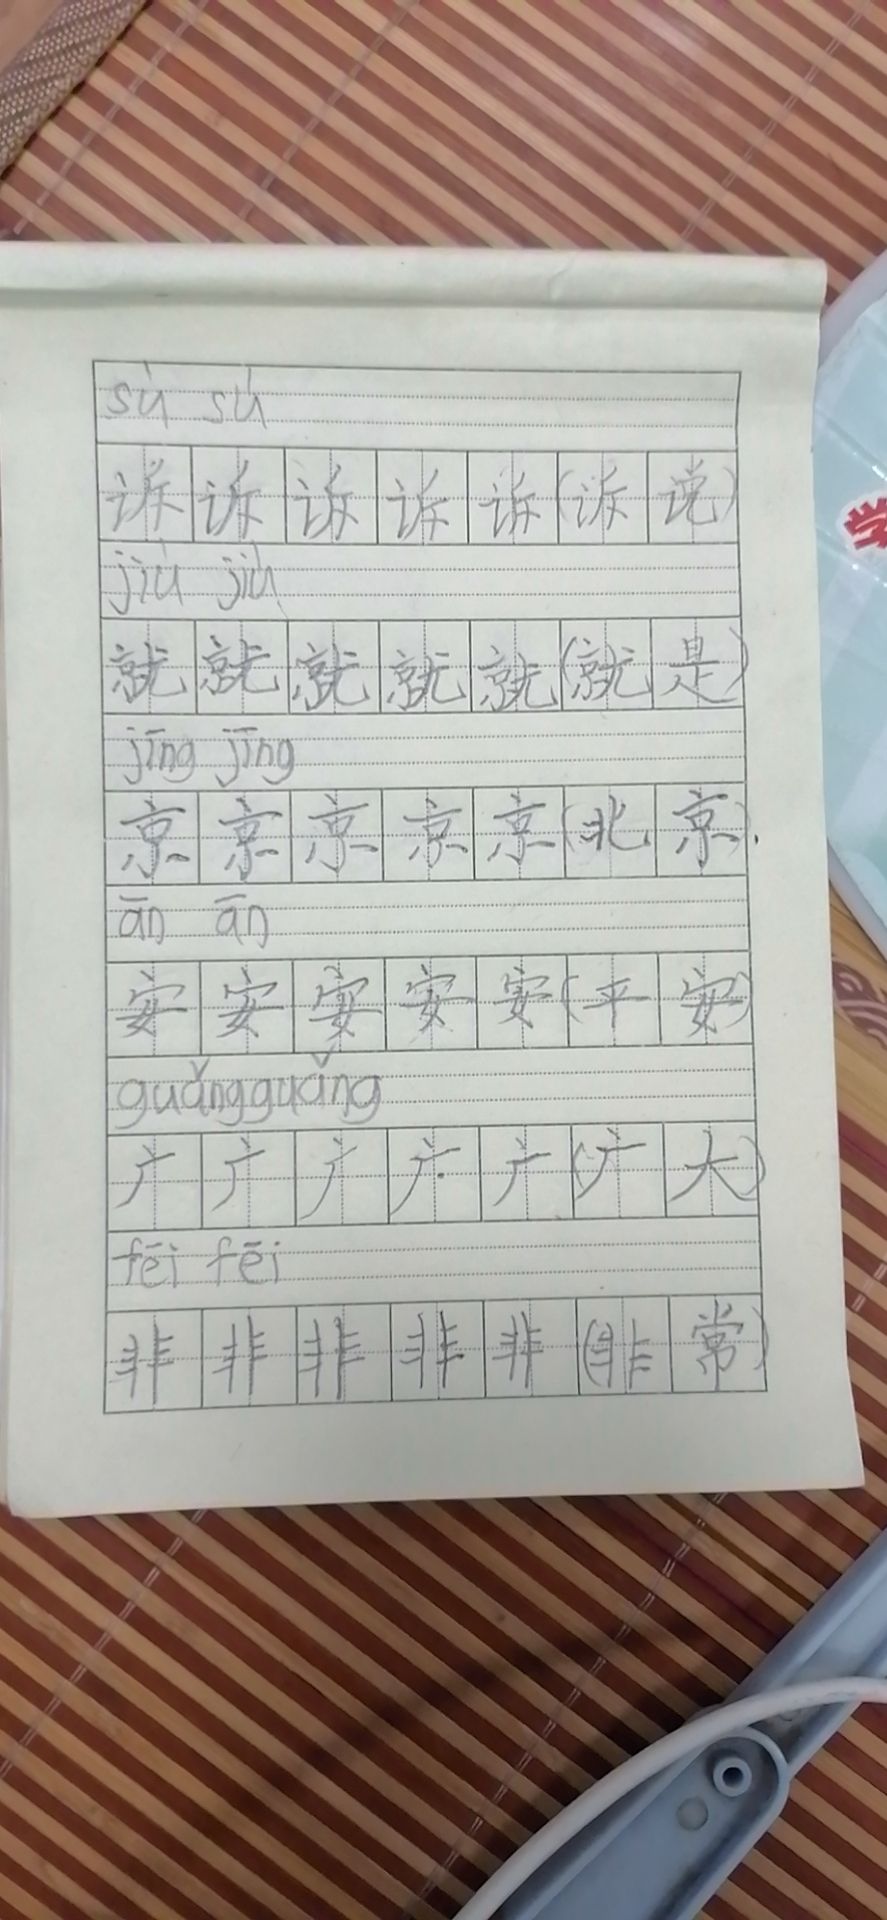 sù sù
诉诉诉诉诉(诉说)
jiù jiù
就就就就就(就是)
jīng jīng
京京京京京(北京).
ān ān
安安安安安(平安)
guǎng guǎng
广广广广广(广大)
fēi fēi
非非非非非(非常)